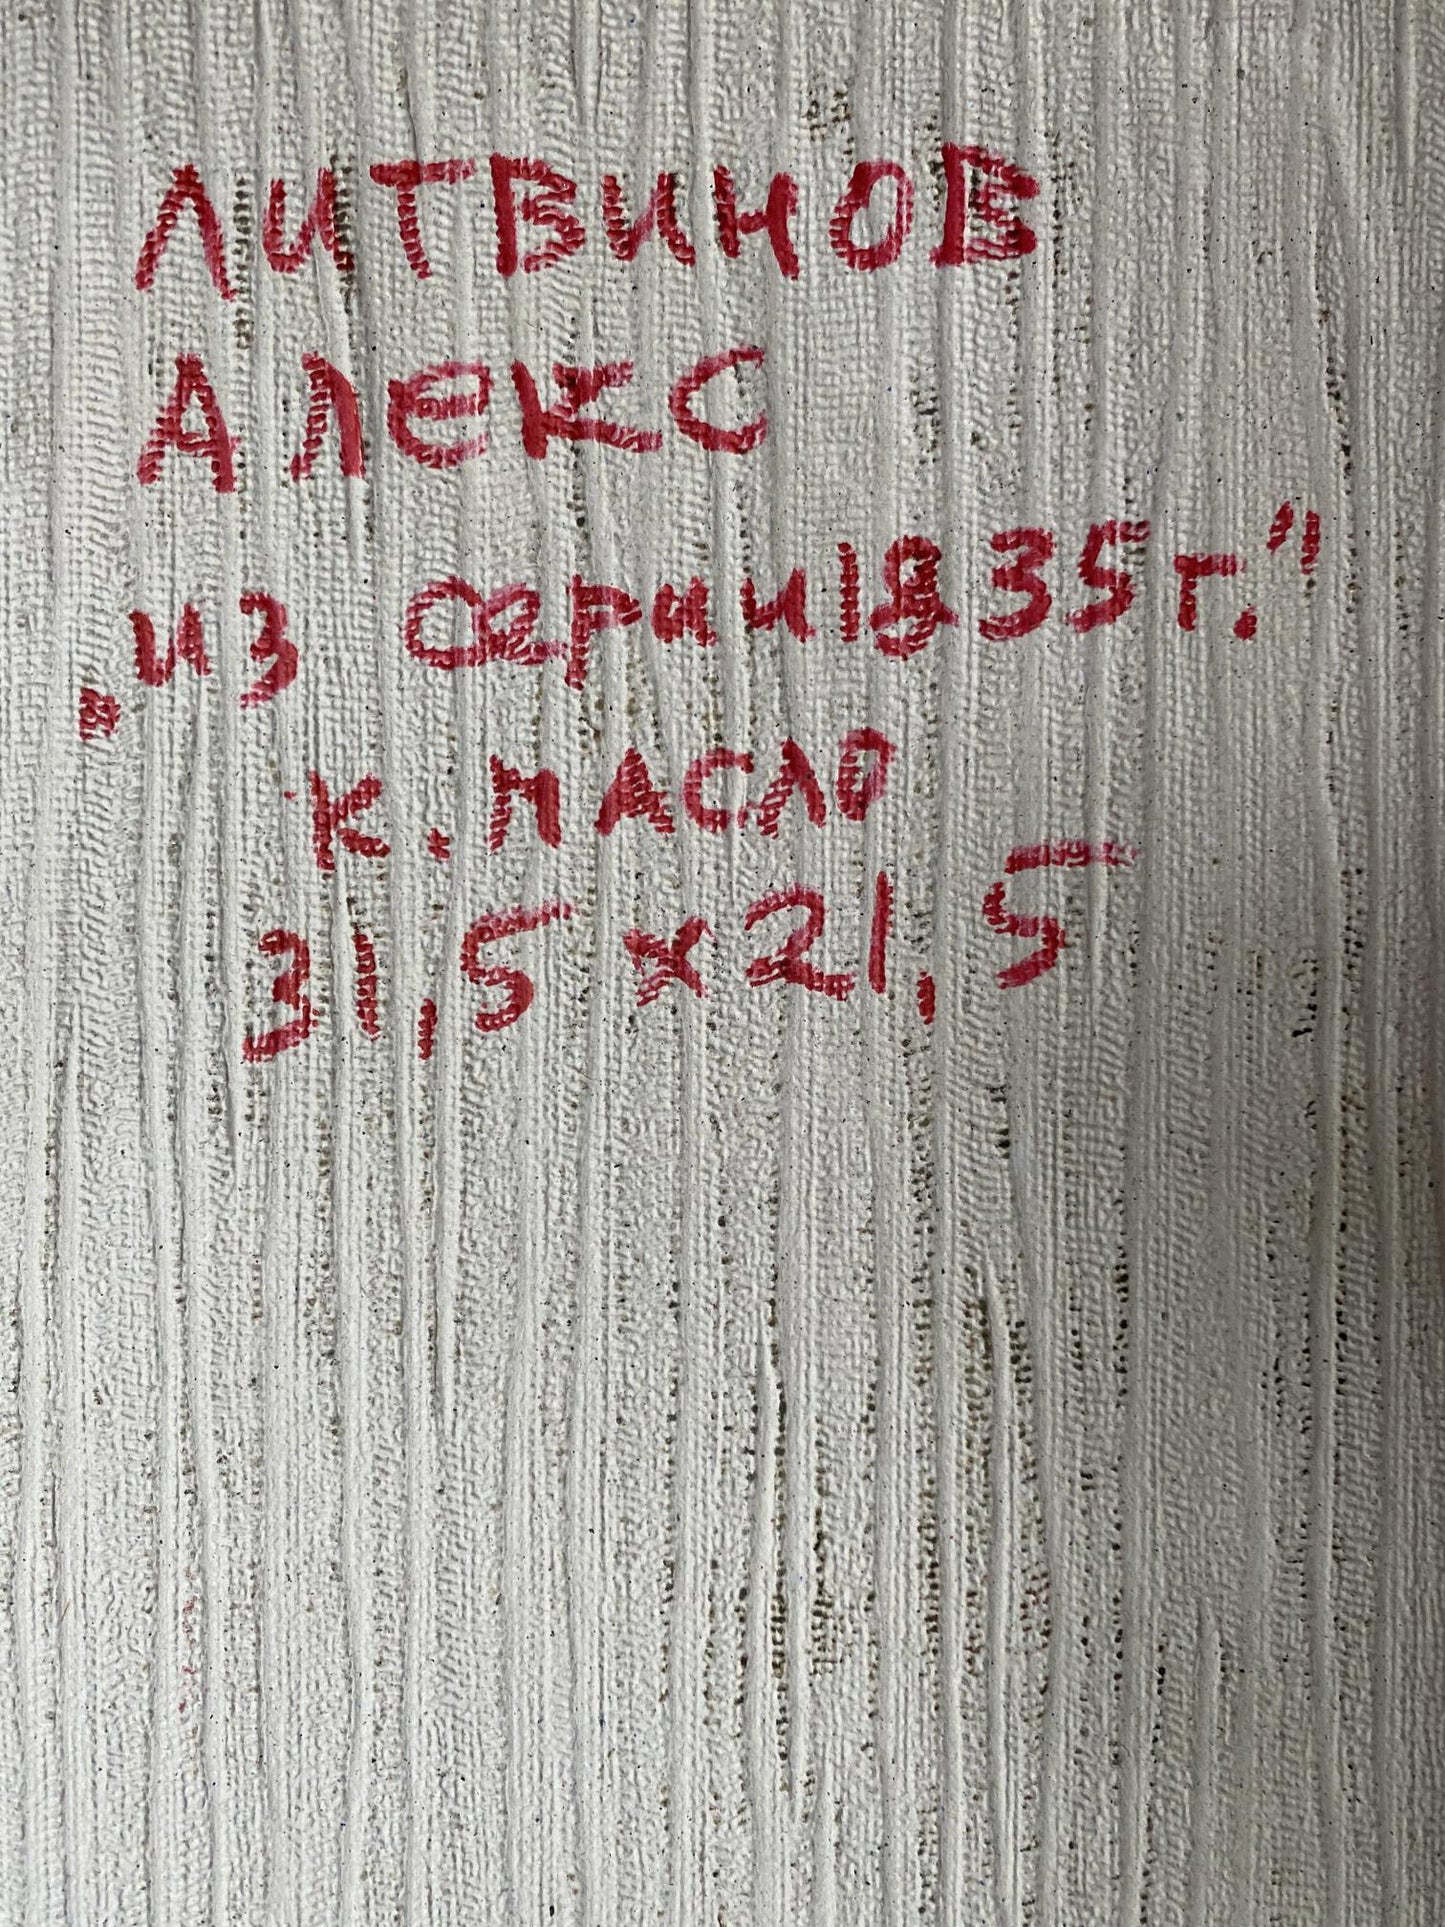 ЛИТВИНОВ
АЛЕКС
„из серии 1835 г."
к. масло
31,5 х 21,5